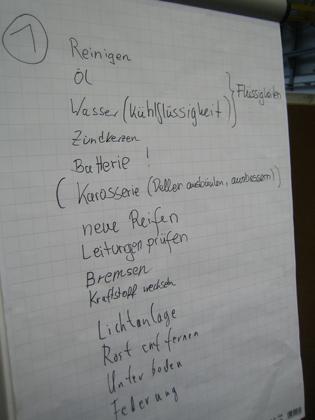 1
Reinigen
Öl
Wasser (Kühlflüssigkeit) } Flüssigkeiten
Zündkerzen
Batterie !
( Karosserie (Dellen ausbeulen, ausbessern) )
neue Reifen
Leitungen prüfen
Bremsen
Kraftstoff wechseln
Lichtanlage
Rost entfernen
Unterboden
Federung